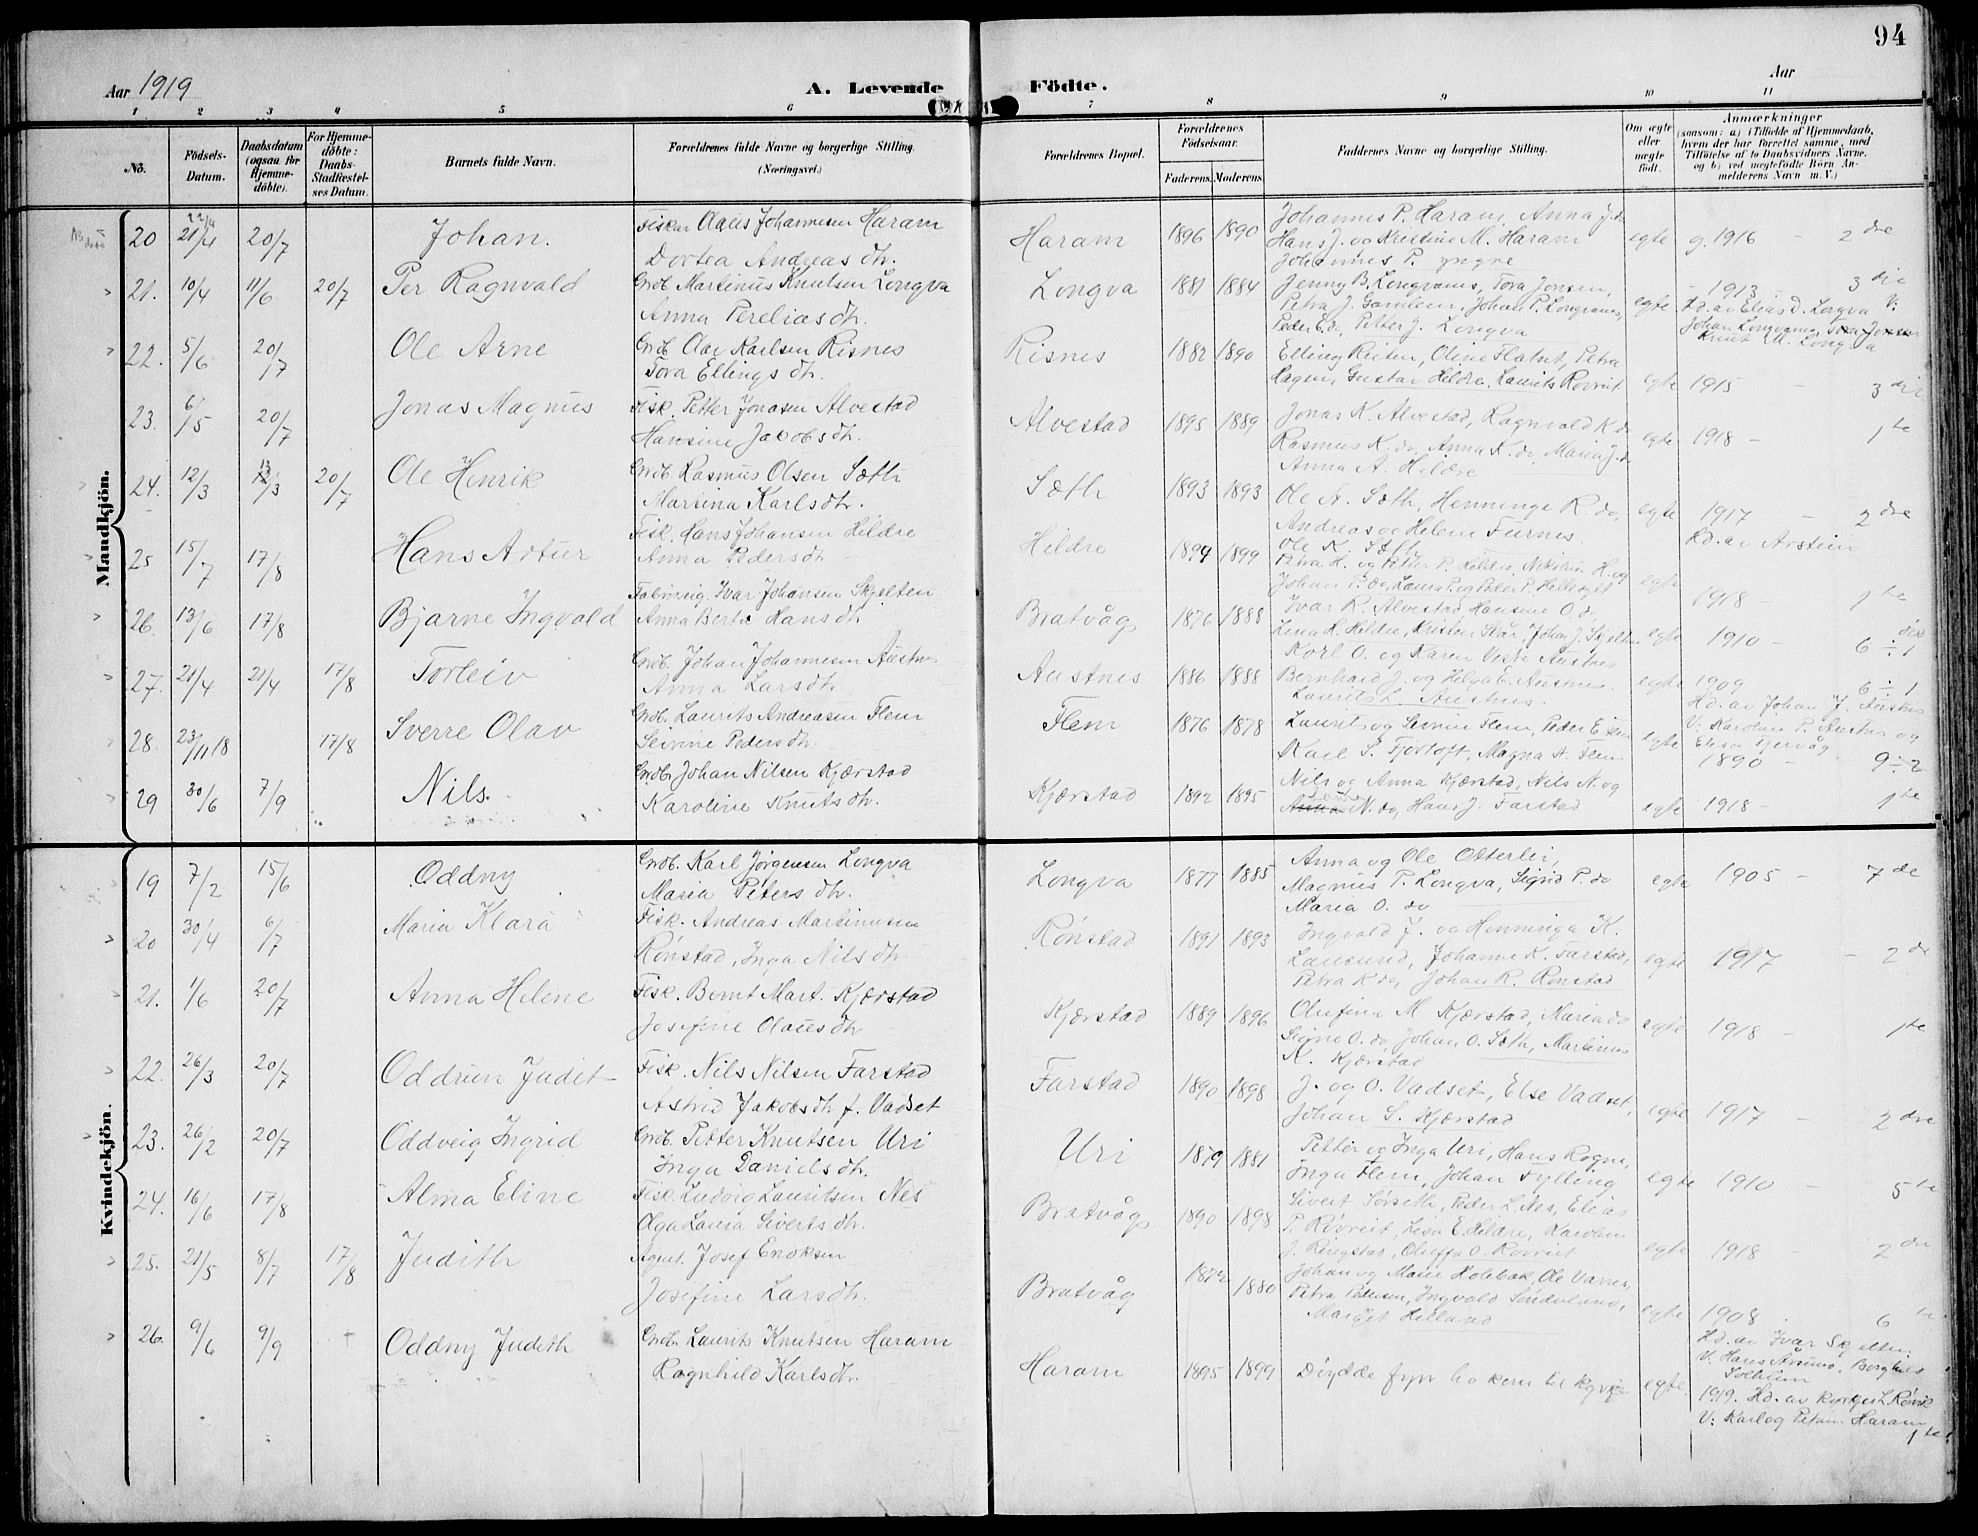 94
Aar 1919
A. Levende Födte.
Aar
1 2 3 4 5 6 7 8 9 10 11
No.
Födsels-Datum.
Daabsdatum (ogsaa for Hjemme-döbte).
For Hjemme-döbte: Daabs-Stadfæstel-ses Datum.
Barnets fulde Navn.
Forældrenes fulde Navne og borgerlige Stilling. (Næringsvei.)
Forældrenes Bopæl.
Forældrenes Födselsaar.
Faderens. Moderens.
Faddernes Navne og borgerlige Stilling.
Om ægte eller uægte födt.
Anmærkninger
(saasom: a) i Tilfælde af Hjemmedaab, hvem der har forrettet samme, med Tilföielse af to Daabsvidners Navne. og b) ved uægtefödte Börn An-melderens Navn m. V.)
Mandkjön.
20 22/4 21/4 20/7 Johan. Fisker Olaus Johannesen Haram Haram 1896 1890 Johannes P. Haram, Anna J. do egte g. 1916 - 2 dre
Dortea Andreas dtr. Hans J. og Kristine M. Haram
Johannes P. yngre
21. 10/4 11/6 20/7 Per Ragnvald Grdb. Martinus Knutsen Longva Longva 1881 1884 Jenny B. Longvanes, Tora Jonsen, egte - 1913 - 3 die
Anna Pereliasdtr. Petra J. Gamlem, Johan P. Longvanes, Hd. av Elias D. Longva V:
Peder E. do, Petter J. Longva Johan Longvanes, Tora Jonsen
Knut M. Longva
22. 5/6 20/7 Ole Arne Grdb. Olai Karlsen Risnes Risnes 1882 1890 Elling Reiten, Oline Flatset, Petra egte 1915 - 3 die
Tora Ellings dtr. Hagen, Gustav Hildre, Laurits Rovreit
23. 6/5 20/7 Jonas Magnus Fisk. Petter Jonasen Alvestad Alvestad 1895 1889 Jonas K. Alvestad, Ragnvald K. do egte 1918 - 1 te
Hansine Jakobsdtr. Rasmus K. do, Anna K. do, Maria J. do
Anna A. Hildre
24. 12/3 13/3 20/7 Ole Henrik Grdb. Rasmus Olsen Sæth Sæth 1893 1893 Ole A. Sæth, Henninge R. do, egte 1917 - 2 dre
Martina Karlsdtr. Andreas og Helene Furnes. Hd. av Arstein
Ole K. Sæth
25 15/7 17/8 Hans Artur Fisk. Hans Johansen Hildre Hildre 1894 1899 Petra H. og Petter P. Hildre, Nikoline H. og egte 1918 - 1 te
Anna Pedersdtr Johan P. do, Laura P. og Peder P. Hellevik
26. 13/6 17/8 Bjarne Ingvald Ivar Johansen Skjelten Bratvåg 1876 1888 Ivar R. Alvestad Hansine O. do egte 1910 - 6 ÷ 1
Anna Berta Hansdtr Lena H. Hildre, Kristen Skår, Johan J. Skjelten
27. 21/4 21/4 17/8 Torleiv Grdb. Johan Johannesen Austnes Austnes 1886 1888 Karl O. og Karen Austnes egte 1909 6 ÷ 1
Anna Larsdtr Bernhard J. og Helga E. Austnes. Hd. av Johan J. Austnes
Laurits L. Austnes. V: Karoline P. Austnes og
28. 23/11 18 17/8 Sverre Olav Grdb. Laurits Andreasen Flem Flem 1876 1878 Laurits og Severine Flem, Peder E. Flem egte 1890 - 9 ÷ 2
Sevrine Pedersdtr. Karl S. Fjørtoft, Magna A. Flem
29 30/6 7/9 Nils. Grdb. Johan Nilsen Kjærstad Kjærstad 1892 1895 Nils og Anna Kjærstad, Nils N. og egte 1918 - 1 te
Karoline Knutsdtr. Anna N. do, Hans J. Farstad
Kvindekjön.
19 7/2 15/6 Oddny Grdb. Karl Jørgensen Longva Longva 1877 1885 Anna og Ole Otterlei, egte 1905 - 7 de
Maria Peters dtr. Magnus P. Longva, Sigrid P. do
Maria O. do
20 30/4 6/7 Maria Klara Fisk. Andreas Martinusen Rønstad 1891 1893 Ingvald J. og Henninga K. egte 1917 - 2 dre
Rønstad, Inga Nils dtr Lausund, Johanne K. Farstad,
Petra K do, Johan R. Rønstad
21. 1/6 20/7 Anna Helene Fisk. Bernt Mart. Kjærstad Kjærstad 1889 1896 Olufine M Kjærstad, Maria do egte 1918 - 1te
Josefine Olausdtr. Signe O. do, Johan O. Sæth, Martinus
K. Kjærstad
22. 26/3 20/7 Oddrun Judit Fisk. Nils Nilsen Farstad Farstad 1890 1898 J. og O. Vadset, Else Vadset, egte 1917 - 2 dre
Astrid Jakobsdtr f. Vadset Johan S. Kjærstad
23. 26/2 20/7 Oddveig Ingrid Grdb. Petter Knutsen Uri Uri 1879 1881 Petter og Inga Uri, Hans Rogne, egte 1910 - 5 te
Inga Daniels dtr. Inga Flem, Johan Fylling
24. 16/6 17/8 Alma Eline Fisk. Ludvig Lauritsen Nes Bratvåg 1890 1898 Sivert Sørseth, Peder L. Nes, Elias egte 1918 - 2 dre
Olga Lauia Siverts dtr. P. Rovreit, Lisa E. Hildre, Karoline
J. Ringstad, Oluffa O. Rovreit
25. 21/5 8/7 17/8 Judith Agent. Josef Enoksen Bratvåg 1872 1880 Johan og Marie Holebak, Ole Varnes, egte 1908 6 te
Josefine Larsdtr. Petra Pedersen, Ingvald Sønderland, Hd. av Ivar Skjelten.
Margit Helland V: Hans Borghild
Solheim
26. 9/6 9/9 Oddny Judith Grdb. Laurits Knutsen Haram Haram 1895 1899 Døydde fyrr ho kom til kyrkja egte 1919. Hd. av kyrkjes. L. Røvik
Ragnhild Karlsdtr. V: Karl og Petrine Haram
1 te